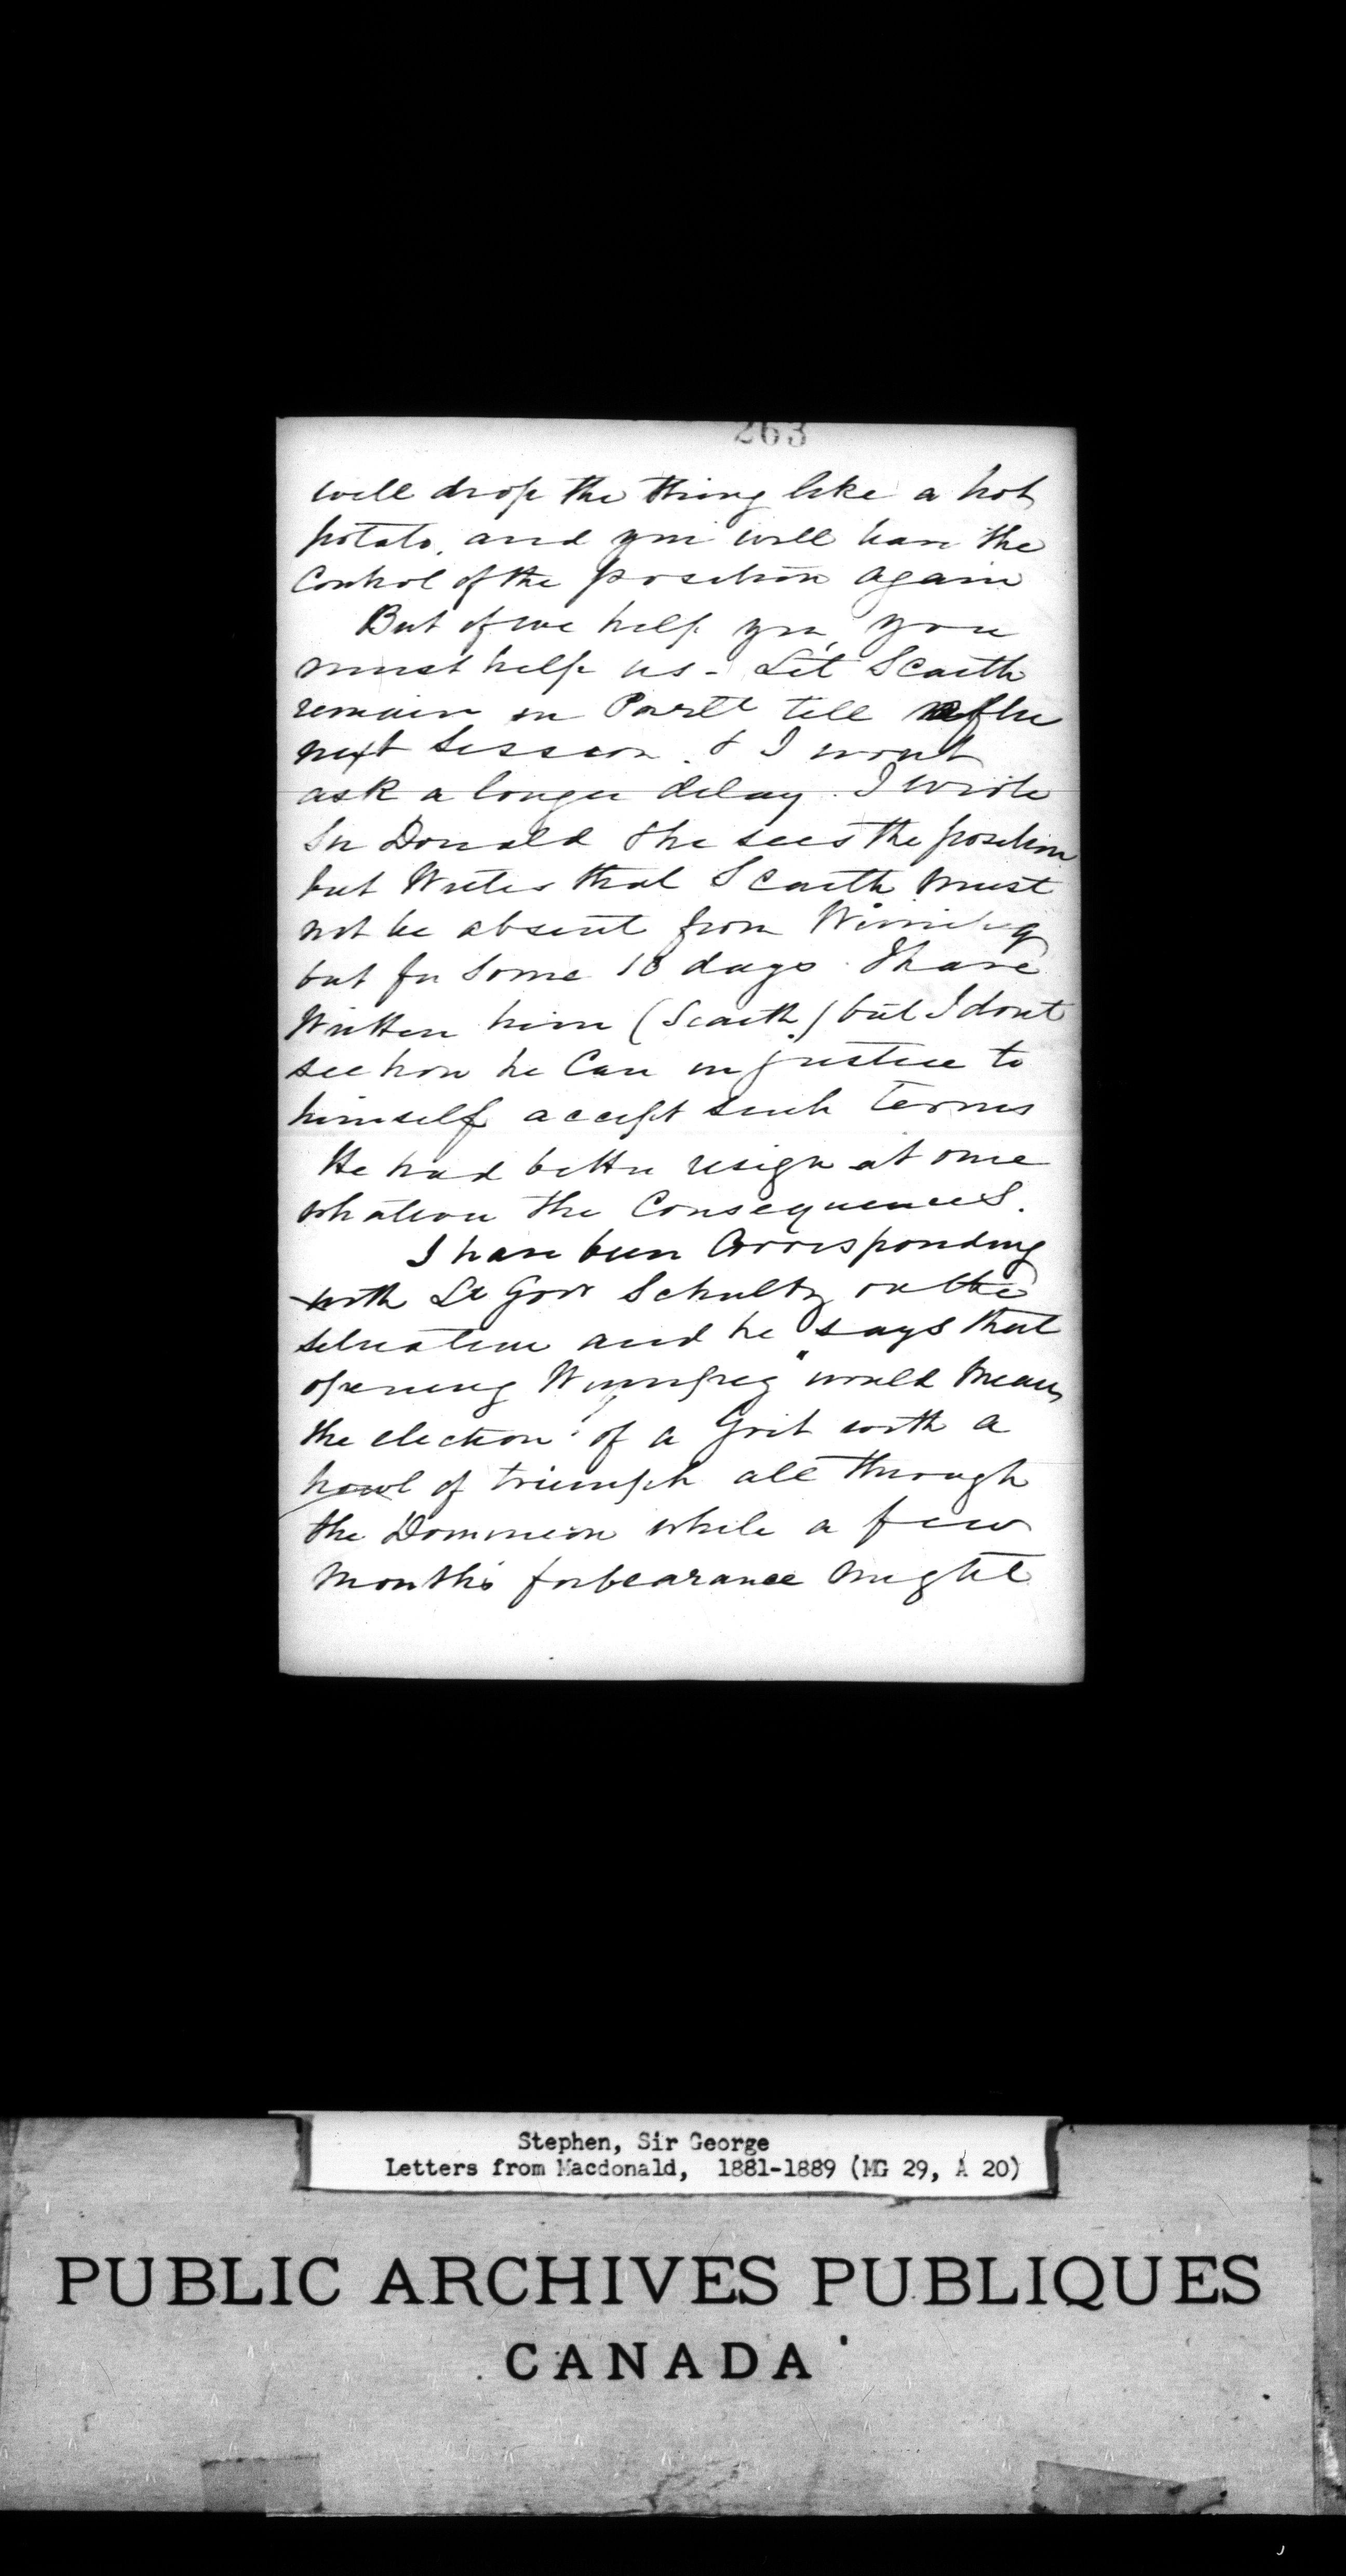 263
will drop the thing like a hot
potato, and you will have the
Control of the position again
But if we help you, you
must help us - Let Scarth
remain in Parlt till after
next Session. & I wont
ask a longer delay. I wrote
Sir Donald & he sees the position
but Writes that Scarth must
not be absent from Winnipeg
but for some 10 days. I have
Written him (Scarth) but I dont
see how he Can in justice to
himself accept such terms
He had better resign at once
whatever the Consequences.
I have been Corresponding
with Lt Govr Schultz on the
situation and he says that
opening Winnipeg "would mean
the election of a Grit with a
howl of triumph all through
the Dominion while a few
months forbearance might
Stephen, Sir George
Letters from Macdonald, 1881-1889 (MG 29, A 20)
PUBLIC ARCHIVES PUBLIQUES
CANADA